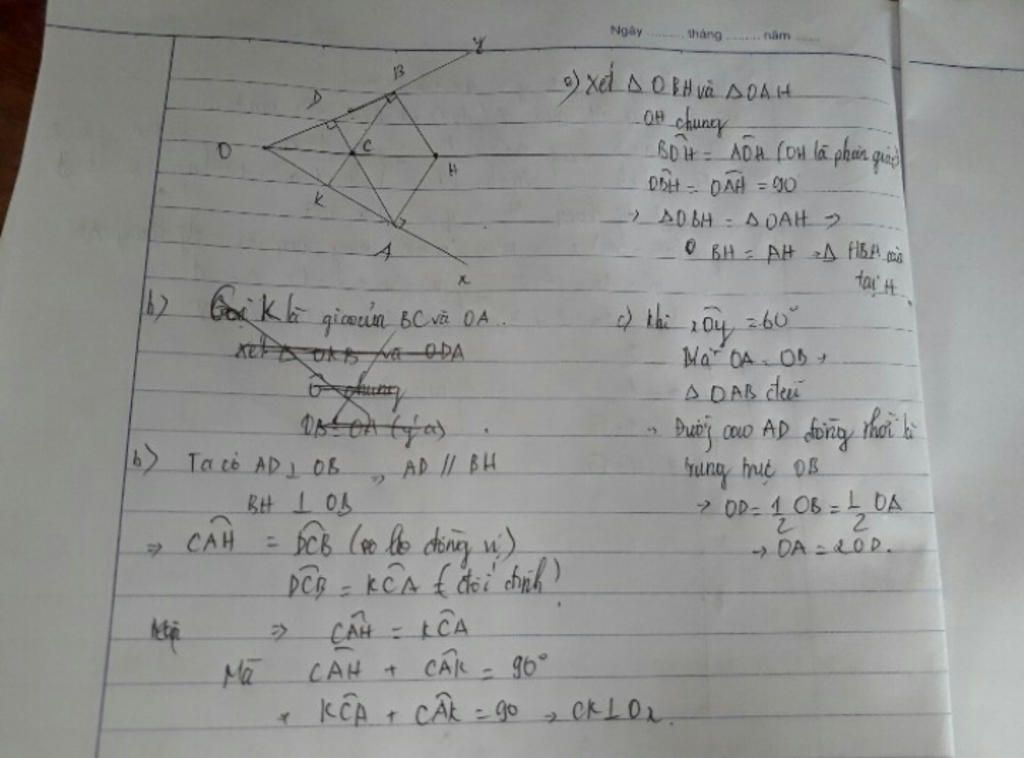 Ngày ......... tháng ....... năm ......
y
B
D
O
C
H
K
A
x
a) Xét Δ OBH và Δ OAH
OH chung
BOH = AOH (OH là phân giác)
OBH = OAH = 90
→ Δ OBH = Δ OAH ⇒
BH = AH → Δ HBA cân
tại H.
b) Gọi K là giao của BC và OA.
Xét Δ OKB và ODA
O chung
OB = OA (ý a)
b) Ta có AD ⊥ OB ⇒ AD // BH
BH ⊥ OB
⇒ CAH = DCB (so le đồng vị)
DCB = KCA (đối đỉnh)
⇒ CAH = KCA
Mà CAH + CAK = 90°
KCA + CAK = 90 → CK ⊥ Ox.
c) Khi xOy = 60°
Mà OA = OB →
Δ OAB đều
→ Đường cao AD đồng thời là
trung trực OB
→ OD = 1/2 OB = 1/2 OA
→ OA = 2OD.